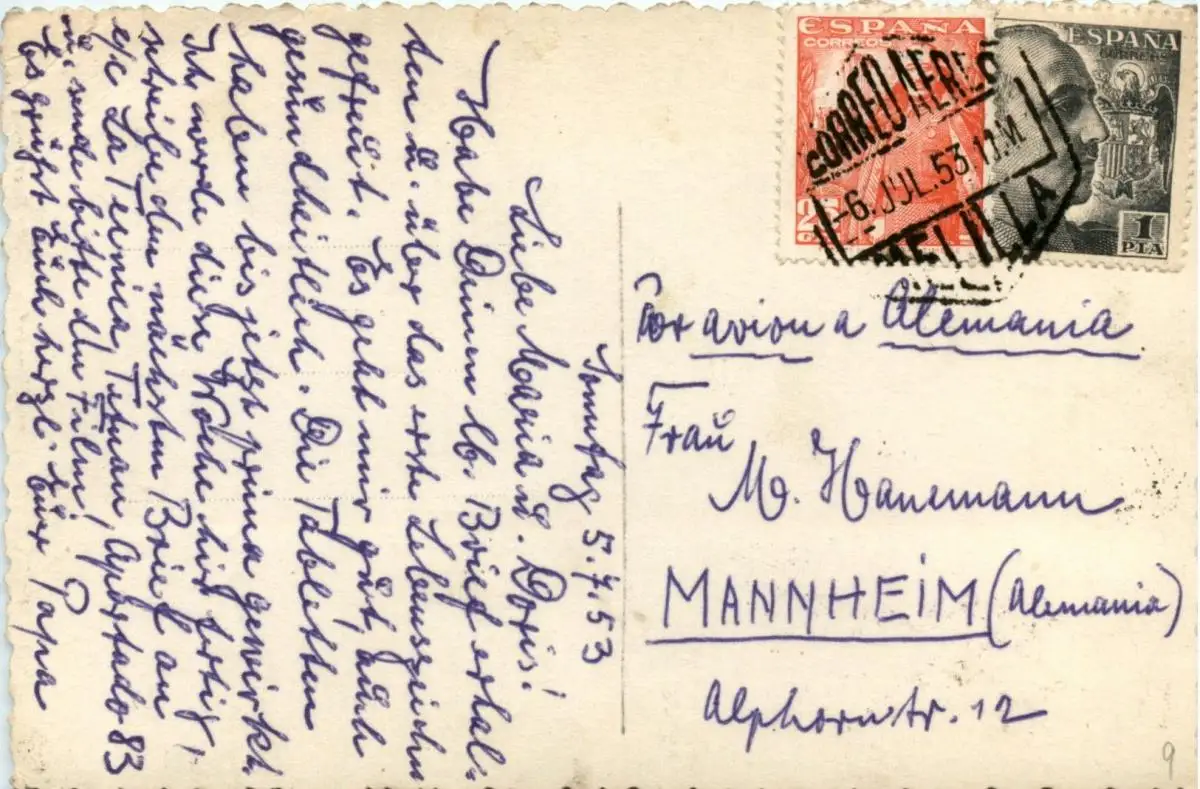 Sonntag 5.7.53
Liebe Maria u. Doris!
Habe Deinen lb. Brief erhal-
ten u. über das erste Lebenszeichen
gefreut. Es geht mir gut, auch
gesundheitlich. Die Tabletten
haben bis jetzt prima gewirkt.
Ich werde diese Woche hier fertig,
schreibe den nächsten Brief an
c/c La Termica, Tetuan, Apartado 83
u. sende bitte den Film!
Es grüßt Euch herzl. Euer Papa
ESPAÑA
CORREOS
25
ESPAÑA
CORREOS
1
PTA
CORREO AEREO
-6.JUL.53.
MELILLA
Por avion a Alemania
Frau
M. Hanemann
MANNHEIM (Alemania)
Alphornstr. 12
9